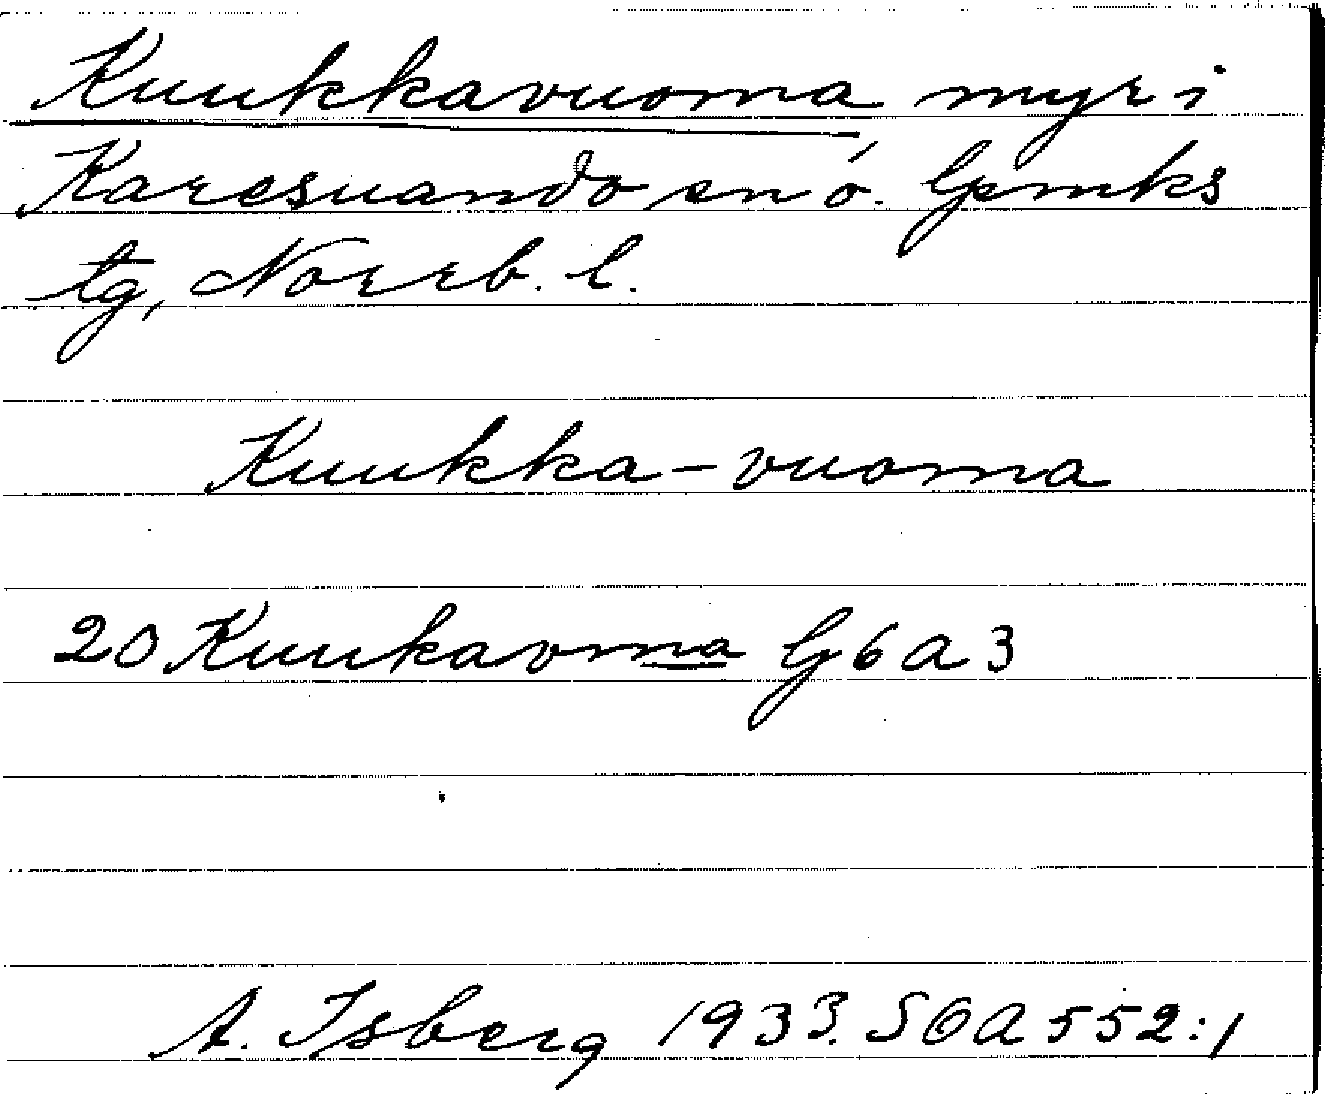 Kuukkavuoma myr i
Karesuando sn ö. Gemks
tg, Norrb. l.
Kuukka-vuoma
20 Kuukavma G 6 a 3
A. Isberg 1933. SOA 552:1